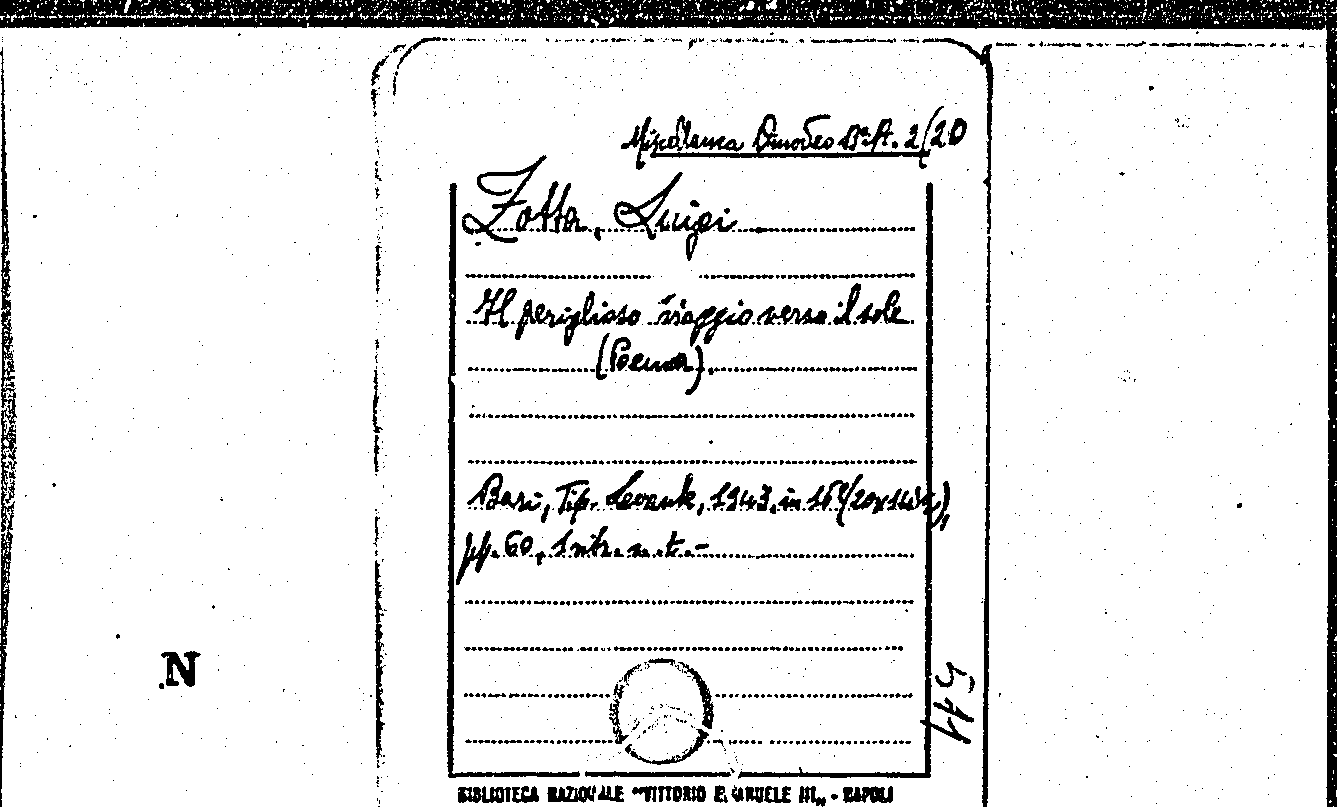 Miscellanea Omodeo Bª A. 2/20
Zotta, Luigi
Il periglioso viaggio verso il sole
(Poema).
Bari, Tip. Levante, 1943, in 16º (20x14½),
pp. 60, 1 n.t.-
544
N
BIBLIOTECA NAZIONALE "VITTORIO EMANUELE III„ - NAPOLI